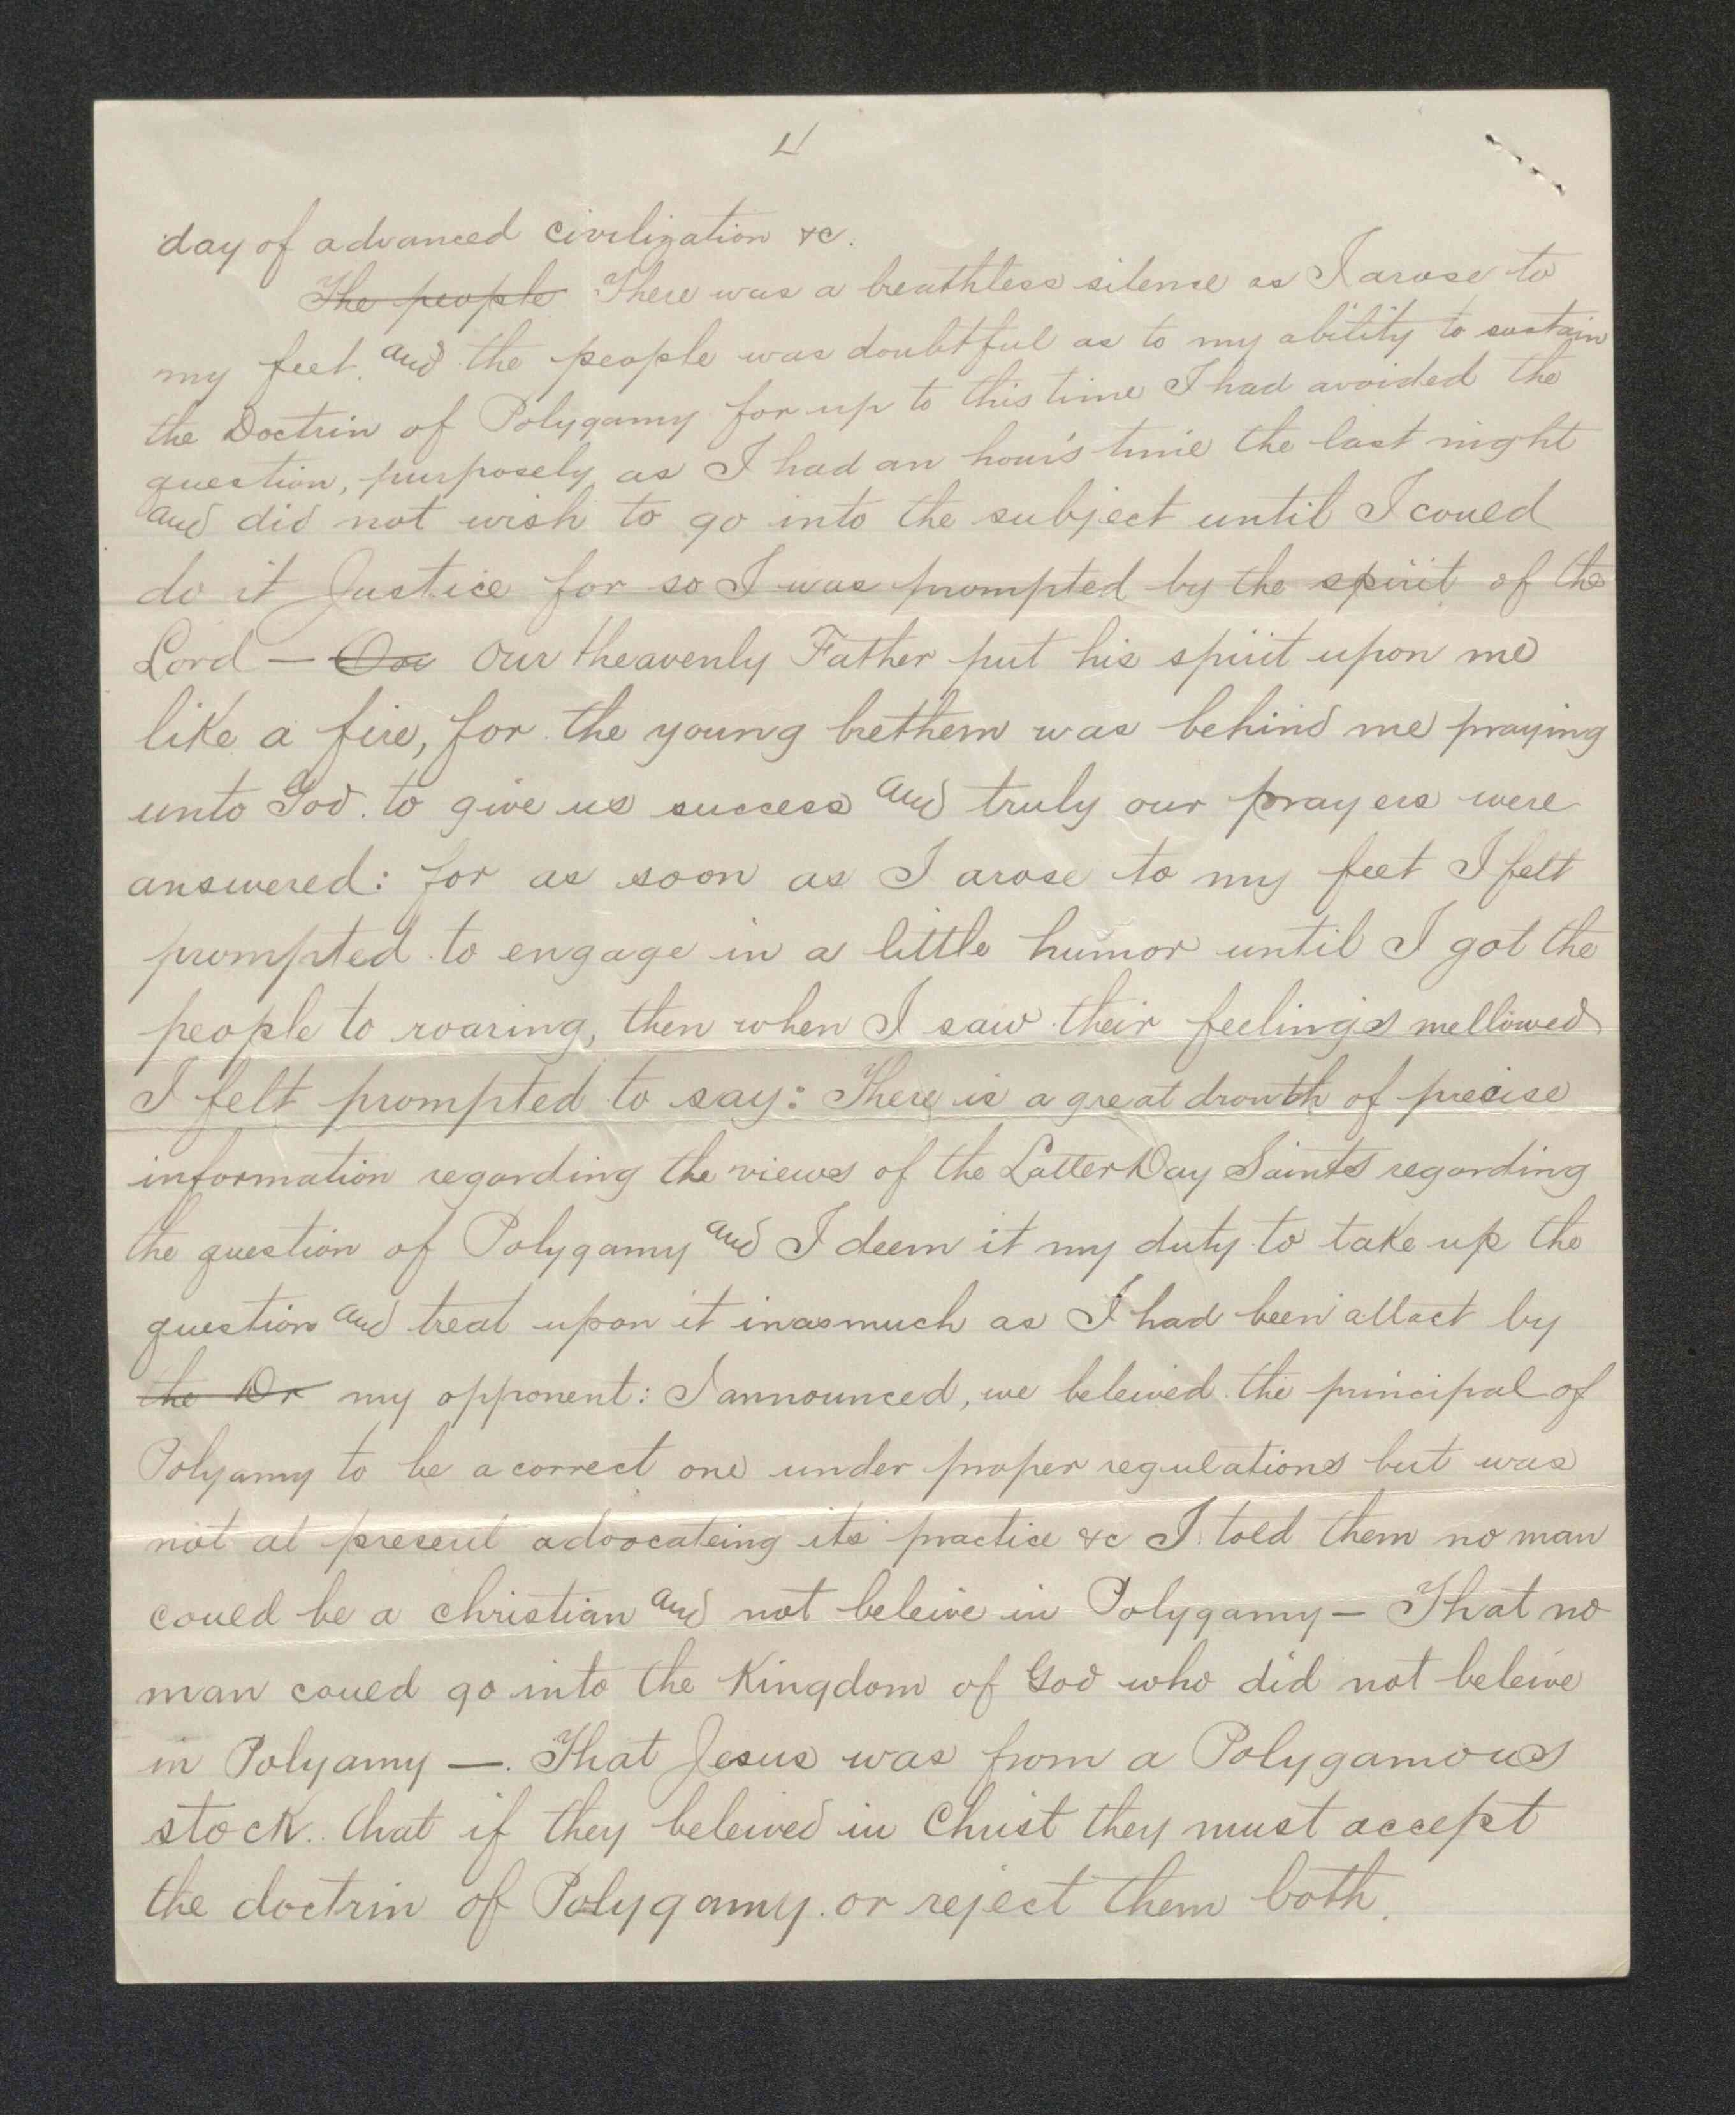 4
day of advanced civilization &c.
The people There was a breathless silence as I arose to
my feet. and the people was doubtful as to my ability to sustain
the Doctrin of Polygamy for up to this time I had avoided the
question, purposely as I had an hour's time the last night
and did not wish to go into the subject until I coued
do it Justice for so I was prompted by the spirit of the
Lord — Our Our Heavenly Father put his spirit upon me
like a fire, for the young brethern was behind me praying
unto God. to give us success and truly our prayers were
answered: for as soon as I arose to my feet I felt
prompted to engage in a little humor until I got the
people to roaring, then when I saw their feelings mellowed
I felt prompted to say: There is a great drouth of precise
information regarding the views of the Latter Day Saints regarding
the question of Polygamy and I deem it my duty to take up the
question and treat upon it inasmuch as I had been attact by
the Dr my opponent: I announced, we beleived the principal of
Polyamy to be a correct one under proper regulations but was
not at present advocateing its practice &c I told them no man
coued be a christian and not beleive in Polygamy — That no
man coued go into the Kingdom of God who did not beleive
in Polyamy —. That Jesus was from a Polygamous
stock. that if they beleived in Christ they must accept
the doctrin of Polygamy. or reject them both.